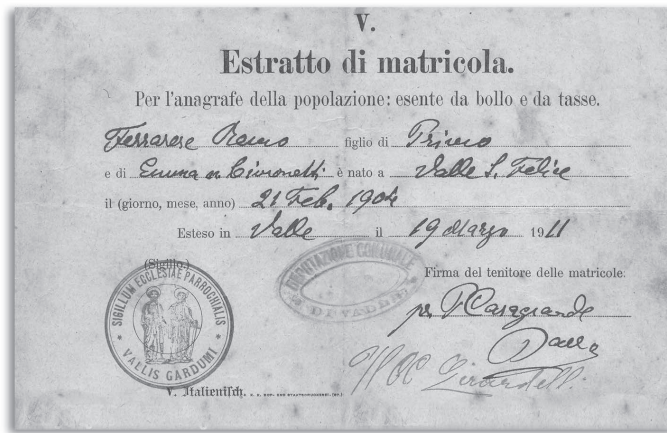 V.
Estratto di matricola.
Per l'anagrafe della popolazione: esente da bollo e da tasse.
Ferrarese Remo figlio di Primo
e di Emma n. Cimonetti è nato a Valle S. Felice
il (giorno, mese, anno) 21 Feb. 1904
Esteso in Valle il 19 Marzo 1911
(Sigillo.)
SIGILLUM ECCLESIAE PARROCHIALIS
VALLIS GARDUMI
DEPUTAZIONE COMUNALE
DI VALLE
Firma del tenitore delle matricole:
per P Casagrande
Girardelli
V. Italienisch.